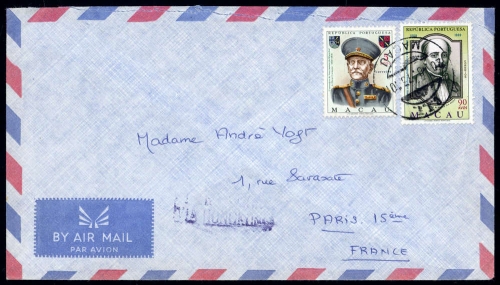 REPÚBLICA PORTUGUESA
MACAU
REPÚBLICA PORTUGUESA
90
MACAU
MACAU
Madame André Vogt
1, rue Sarasate
PARIS 15ème
FRANCE
BY AIR MAIL
PAR AVION